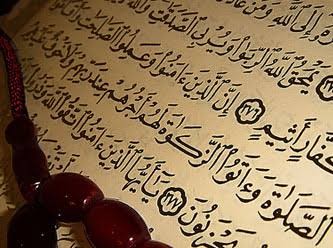 إِلَى ٱللَّهِ وَمَنْ عَادَ
يَمْحَقُ ٱللَّهُ ٱلرِّبَوٰا۟ وَيُرْبِى ٱلصَّدَقَٰتِ وَٱللَّهُ
كَفَّارٍ أَثِيمٍ ٢٧٦ إِنَّ ٱلَّذِينَ ءَامَنُوا۟ وَعَمِلُوا۟ ٱلصَّٰلِحَٰتِ وَأَقَامُوا۟
ٱلصَّلَوٰةَ وَءَاتَوُا۟ ٱلزَّكَوٰةَ لَهُمْ أَجْرُهُمْ عِندَ رَبِّهِمْ وَلَا خَوْفٌ
يَحْزَنُونَ ٢٧٧ يَٰٓأَيُّهَا ٱلَّذِينَ ءَامَنُوا۟ ٱتَّقُوا۟ ٱللَّهَ